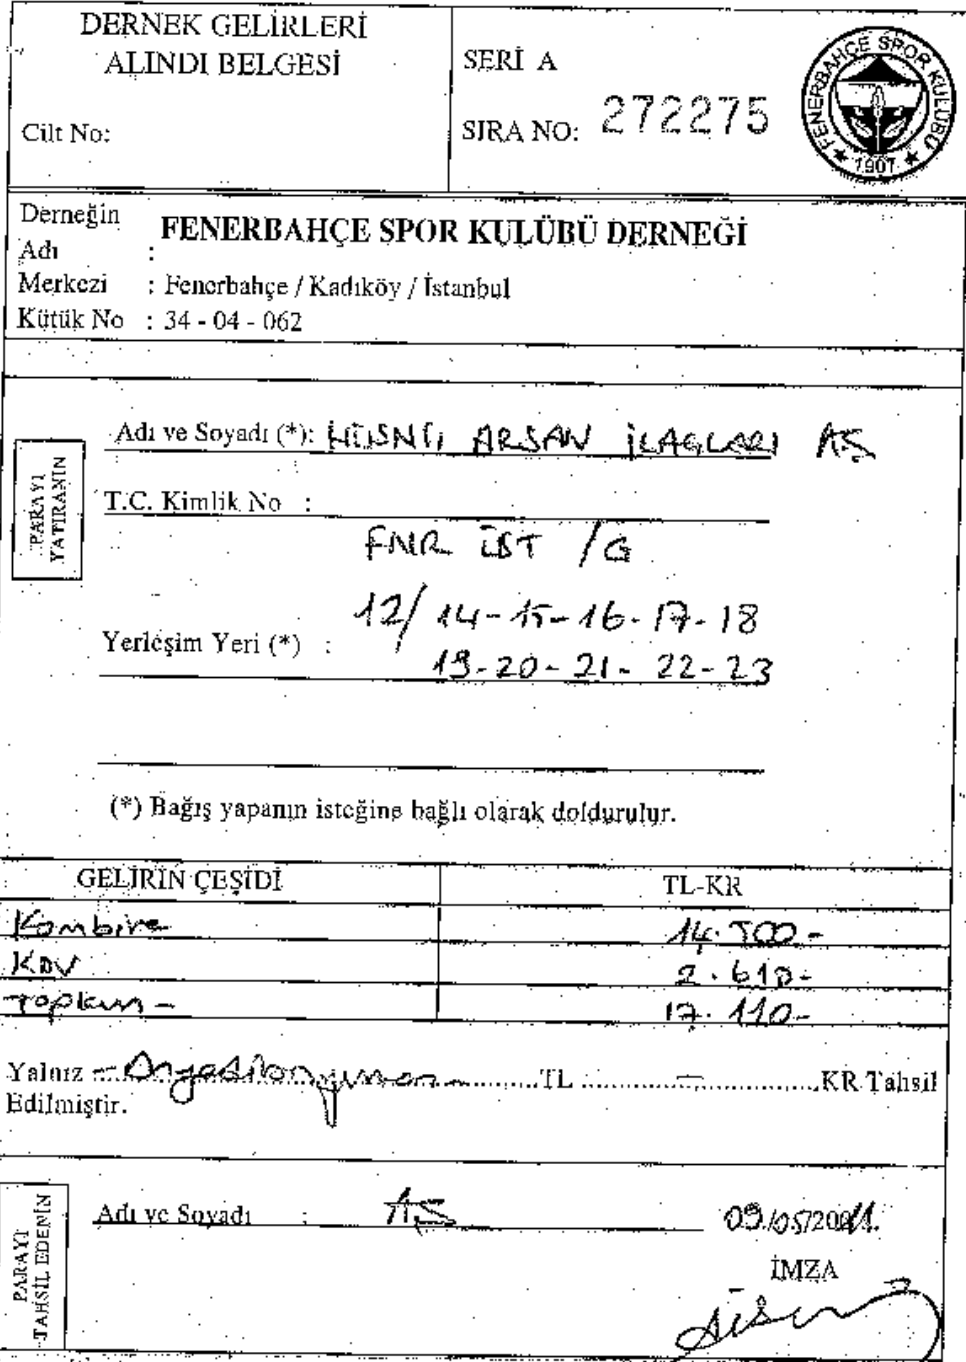 DERNEK GELİRLERİ
ALINDI BELGESİ
Cilt No:
SERİ A
SIRA NO: 272275
FENERBAHÇE SPOR KULÜBÜ
1907
Derneğin
Adı : FENERBAHÇE SPOR KULÜBÜ DERNEĞİ
Merkezi : Fenerbahçe / Kadıköy / İstanbul
Kütük No : 34 - 04 - 062
PARAYI
YATIRANIN
Adı ve Soyadı (*): HÜSNÜ ARSAN İLAÇLARI AŞ
T.C. Kimlik No :
FNR ÜST / G
12/ 14-15-16-17-18
Yerleşim Yeri (*) :
19-20-21-22-23
(*) Bağış yapanın isteğine bağlı olarak doldurulur.
GELİRİN ÇEŞİDİ TL-KR
Kombine 14.500-
KDV 2.610-
Toplam - 17.110-
Yalnız - Onyedibinyüzon TL - KR Tahsil
Edilmiştir.
PARAYI
TAHSİL EDENİN
Adı ve Soyadı : AŞ 09/05/2011.
İMZA